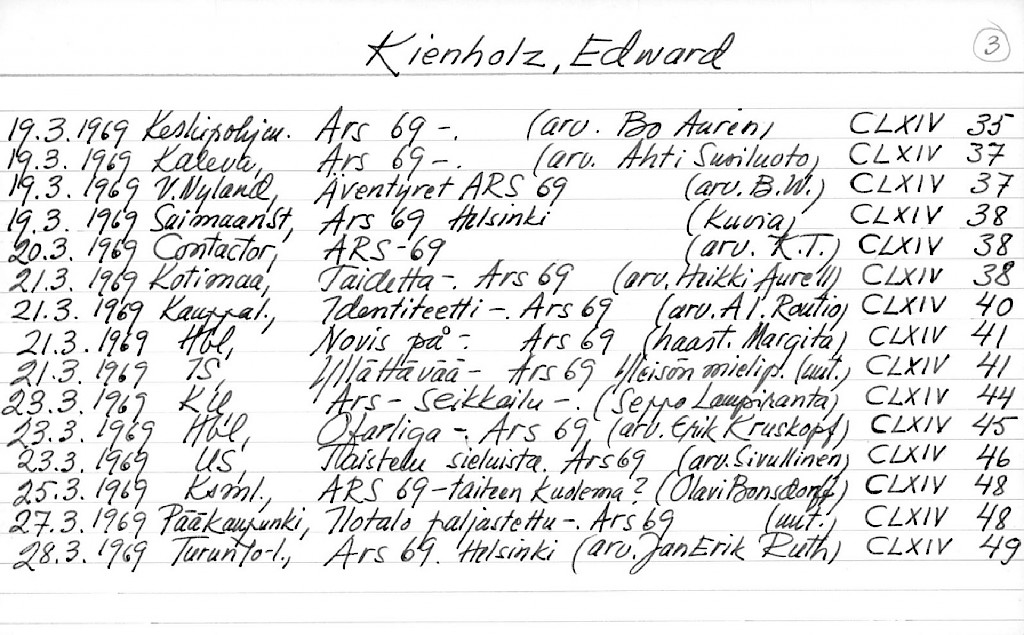 Kienholz, Edward 3
19.3.1969 Keskipohjan. Ars 69 -. (arv. Bo Aurén) CLXIV 35
19.3.1969 Kaleva, Ars 69 -. (arv. Ahti Susiluoto) CLXIV 37
19.3.1969 V. Nyland, Äventyret ARS 69 (arv. B.W.) CLXIV 37
19.3.1969 Saimaanst, Ars 69 Helsinki (Kuvia) CLXIV 38
20.3.1969 Contactor, ARS-69 (arv. K.T.) CLXIV 38
21.3.1969 Kotimaa, Taidetta -. Ars 69 (arv. Heikki Aurell) CLXIV 38
21.3.1969 Kauppal., Identiteetti -. Ars 69 (arv. A.I. Routio) CLXIV 40
21.3.1969 Hbl, Novis på -. Ars 69 (haast. Margita) CLXIV 41
21.3.1969 IS, Yllättävää - Ars 69 Yleisön mielip. (uut.) CLXIV 41
23.3.1969 Ars - Seikkailu -. (Seppo Lampiranta) CLXIV 44
23.3.1969 Hbl, Ofarliga -. Ars 69, (arv. Erik Kruskopf) CLXIV 45
23.3.1969 US, Taistelu sieluista. Ars 69 (arv. Sivullinen) CLXIV 46
25.3.1969 Ksml., ARS 69 - taiteen kuolema? (Olavi Bonsdorff) CLXIV 48
27.3.1969 Pääkaupunki, Ilotalo paljastettu -. Ars 69 (uut.) CLXIV 48
28.3.1969 Turun Yo-l., Ars 69. Helsinki (arv. Jan Erik Ruth) CLXIV 49